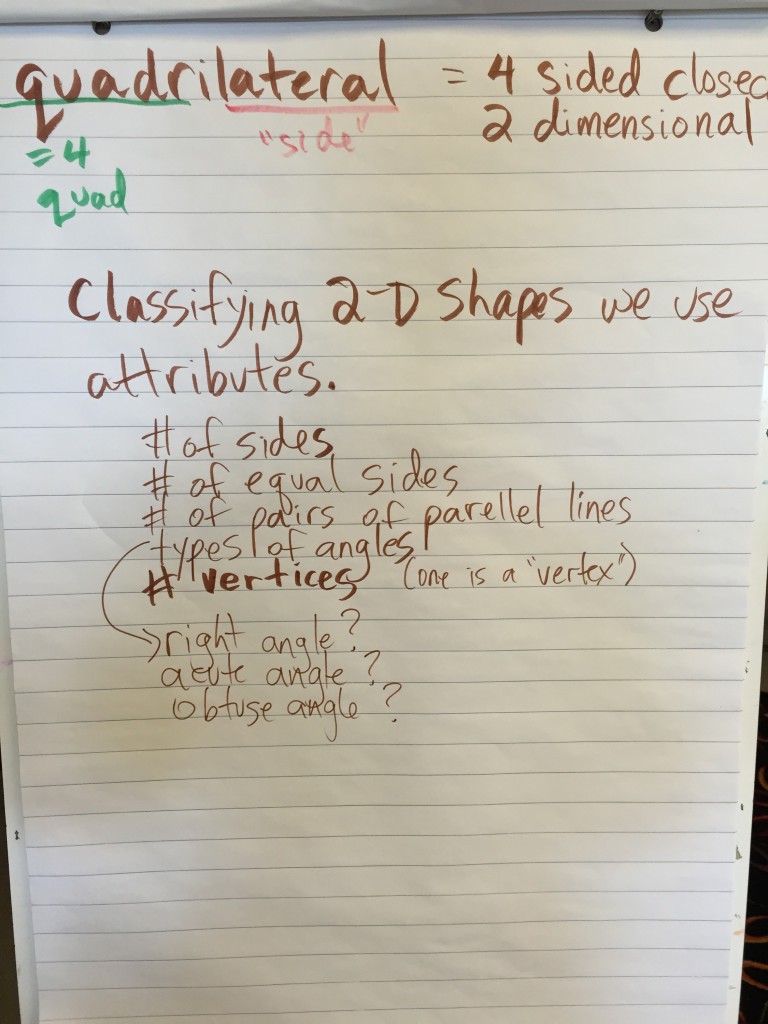 quadrilateral = 4 sided closed
"side" 2 dimensional
= 4
quad
Classifying 2-D Shapes we use
attributes.
# of sides
# of equal sides
# of pairs of parellel lines
types of angles
# vertices (one is a "vertex")
right angle?
acute angle?
obtuse angle?